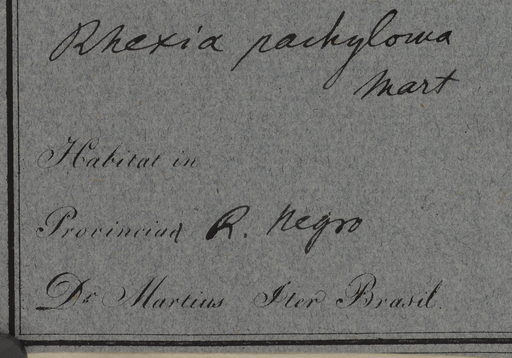 Rhexia pachyloma
Mart
Habitat in
Provincia R. Negro
Dr. Martius Iter Brasil.